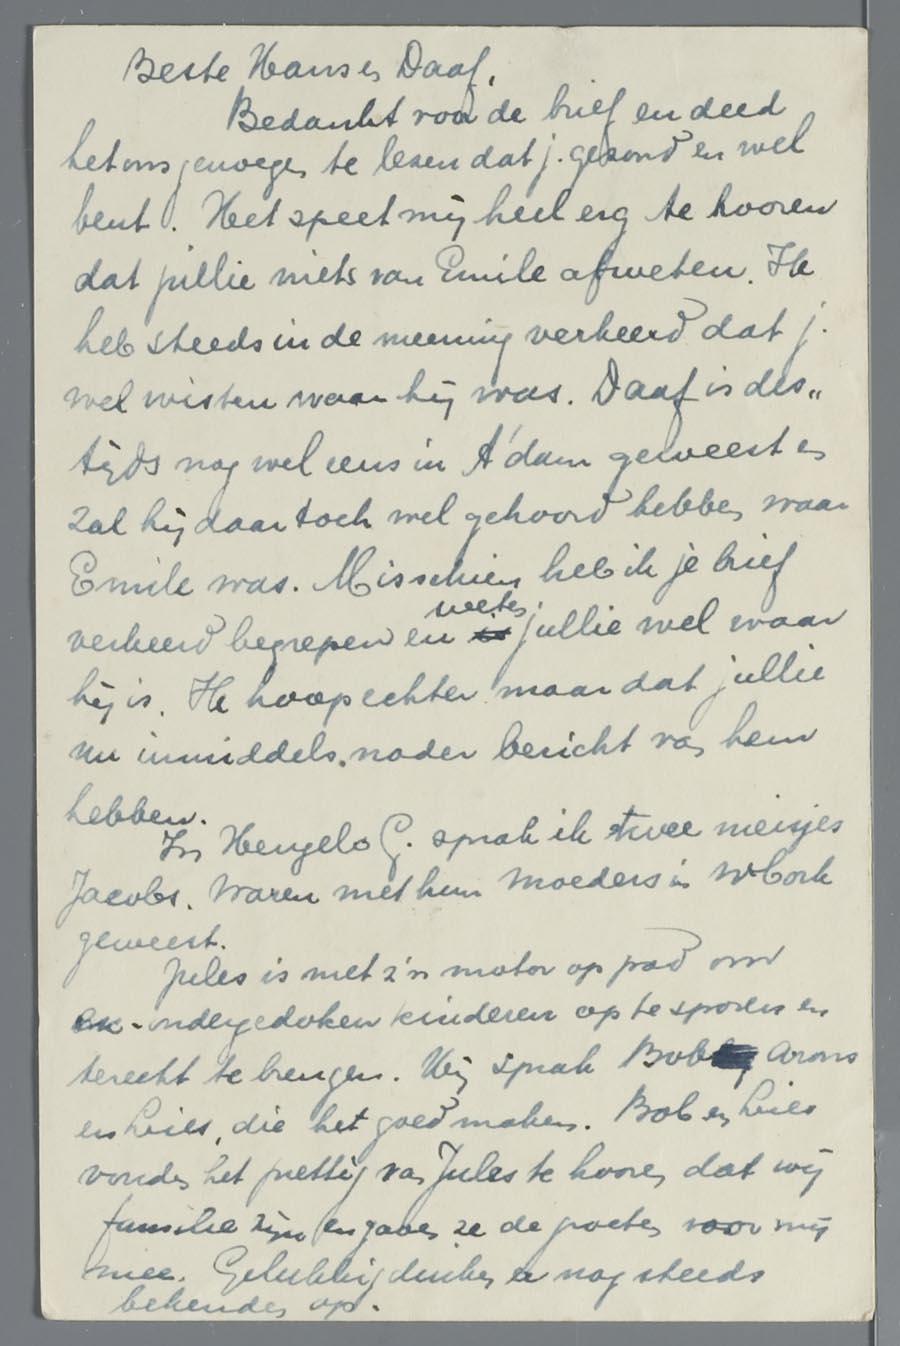 Beste Hans en Daaf,
Bedankt voor de brief en deed
het ons genoegen te lezen dat j. gezond en wel
bent. Het speet mij heel erg te hooren
dat jullie niets van Emile afweten. Ik
heb steeds in de meening verkeerd dat j.
wel wisten waar hij was. Daaf is des„
tijds nog wel eens in A'dam geweest en
zal hij daar toch wel gehoord hebben waar
Emile was. Misschien heb ik je brief
verkeerd begrepen en weten jullie wel waar
hij is. Ik hoop echter maar dat jullie
nu inmiddels nader bericht van hem
hebben.
In Hengelo G. sprak ik twee meisjes
Jacobs. Waren met hun Moeders in W'bork
geweest.
Jules is met z'n motor op pad om
ex-ondergedoken kinderen op te sporen en
terecht te brengen. Hij sprak Bob Arons
en Lies, die het goed maken. Bob en Lies
vonden het prettig van Jules te hooren dat wij
familie zijn en gaven ze de groeten voor mij
mee. Gelukkig duiken er nog steeds
bekenden op.